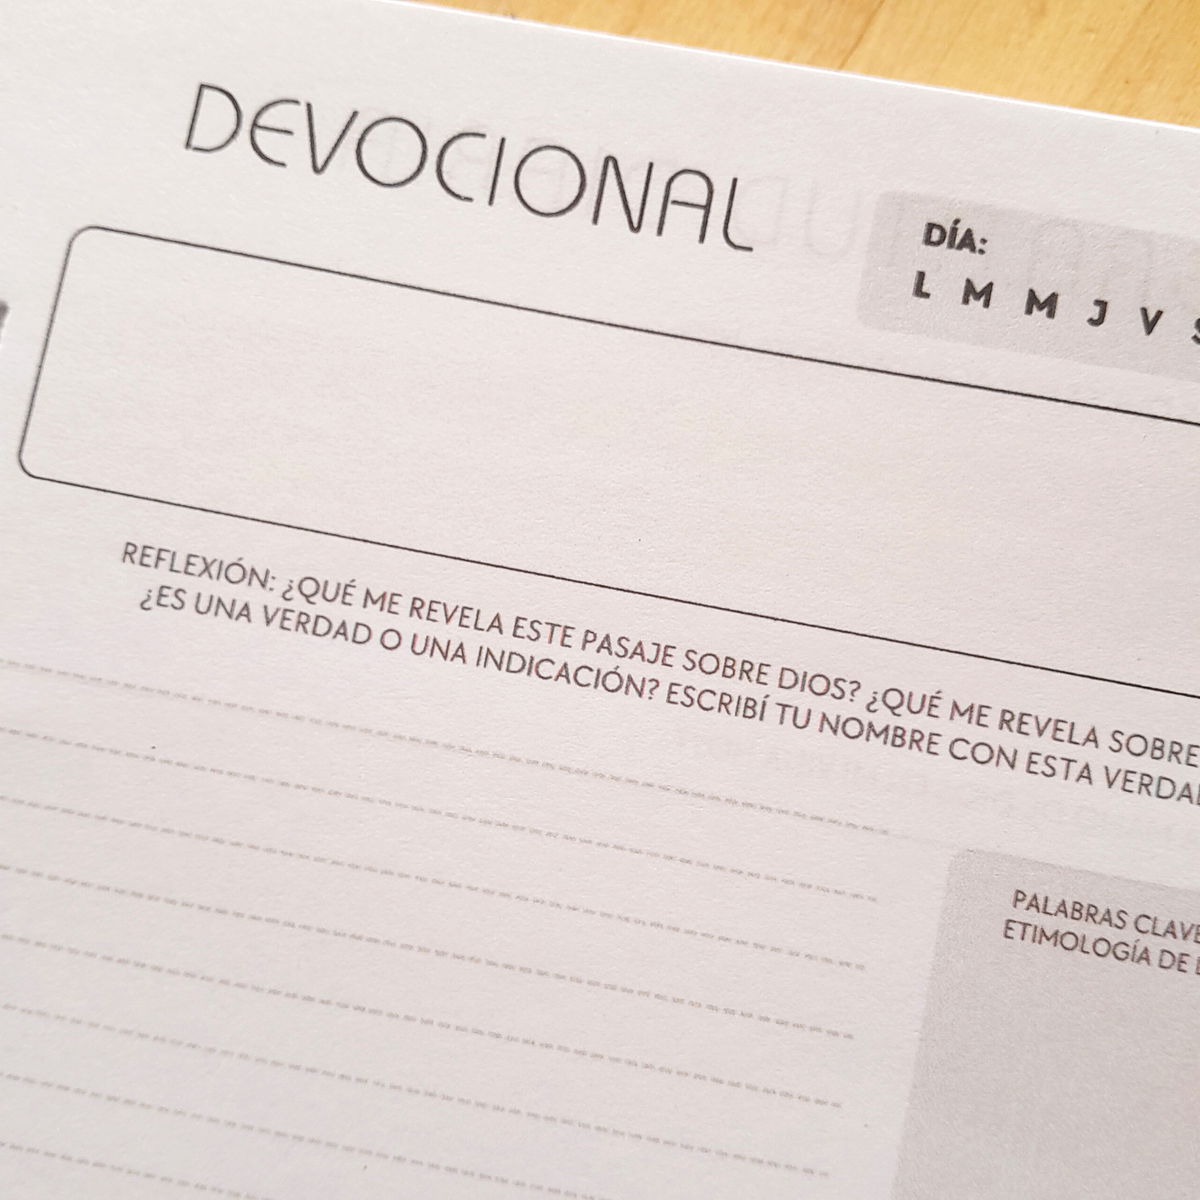 DEVOCIONAL
DÍA:
L M M J V S
REFLEXIÓN: ¿QUÉ ME REVELA ESTE PASAJE SOBRE DIOS? ¿QUÉ ME REVELA SOBRE
¿ES UNA VERDAD O UNA INDICACIÓN? ESCRIBÍ TU NOMBRE CON ESTA
PALABRAS
ETIMOLOGÍA DE